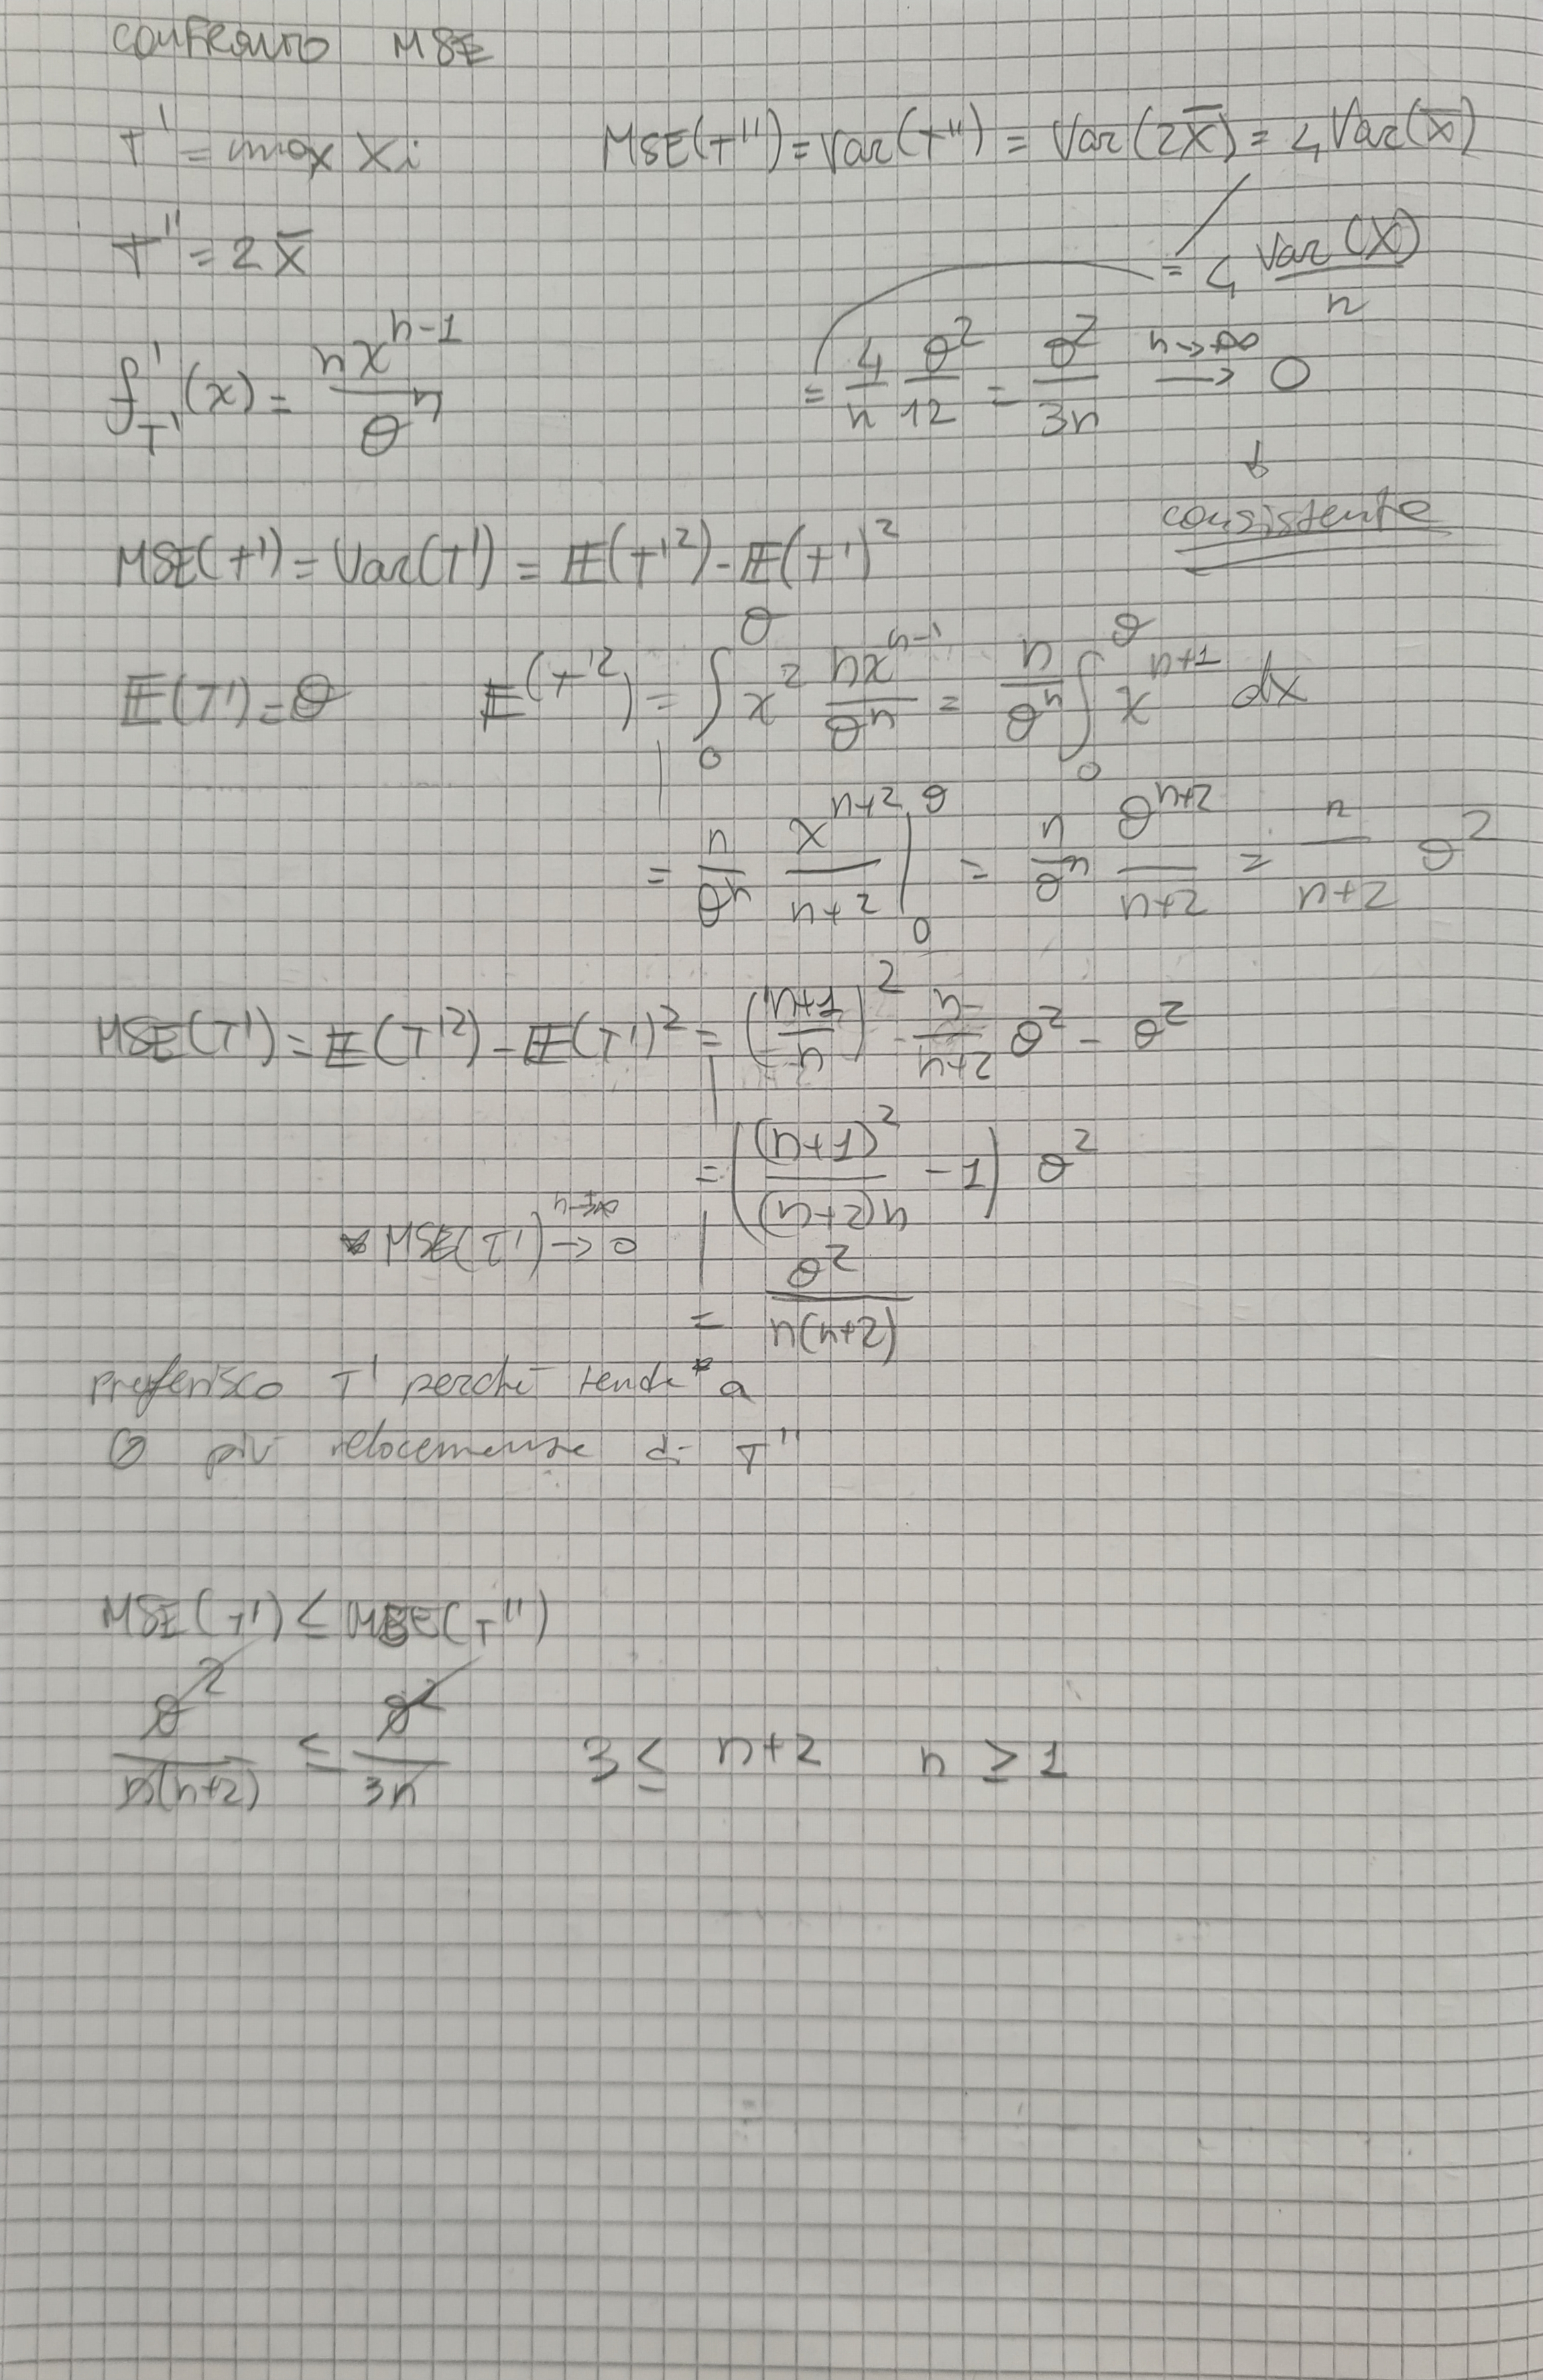 CONFRONTO MSE
T' = max Xi
MSE(T'') = Var(T'') = Var(2X̄) = 4 Var(X̄)
T'' = 2X̄
= 4 Var(X)/n
f'_T'(x) = nx^(n-1)/θ^n
= 4/n θ²/12 = θ²/3n →(n→+∞) 0
↓
consistente
MSE(T') = Var(T') = E(T'²) - E(T')²
E(T') = θ E(T'²) = ∫₀^θ x² nx^(n-1)/θ^n = n/θ^n ∫₀^θ x^(n+1) dx
= n/θ^n x^(n+2)/(n+2) |₀^θ = n/θ^n θ^(n+2)/(n+2) = n/(n+2) θ²
MSE(T') = E(T'²) - E(T')² = ((n+1)/n)² · n/(n+2) θ² - θ²
= ((n+1)²/((n+2)n) - 1) θ²
* MSE(T') →(n→+∞) 0
= θ²/(n(n+2))
preferisco T' perché tende* a
0 più velocemente di T''
MSE(T') ≤ MSE(T'')
θ²/(n(n+2)) ≤ θ²/3n 3 ≤ n+2 n ≥ 1